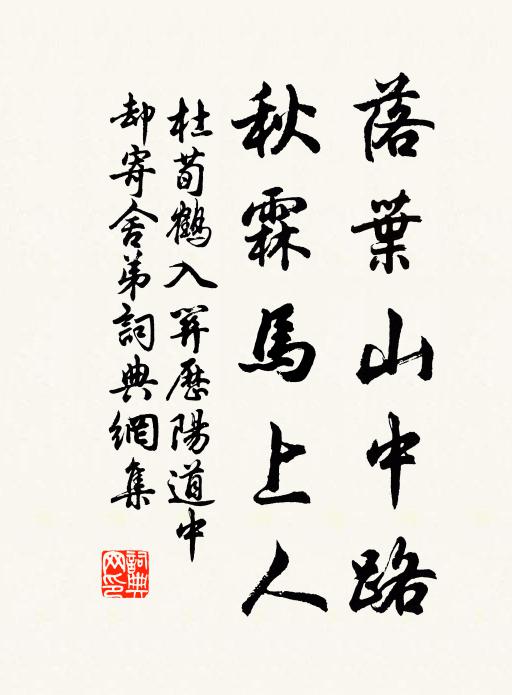 落葉山中路
秋霖馬上人
杜荀鶴入關歷陽道中
却寄舍弟詞典網集
詞典
网印